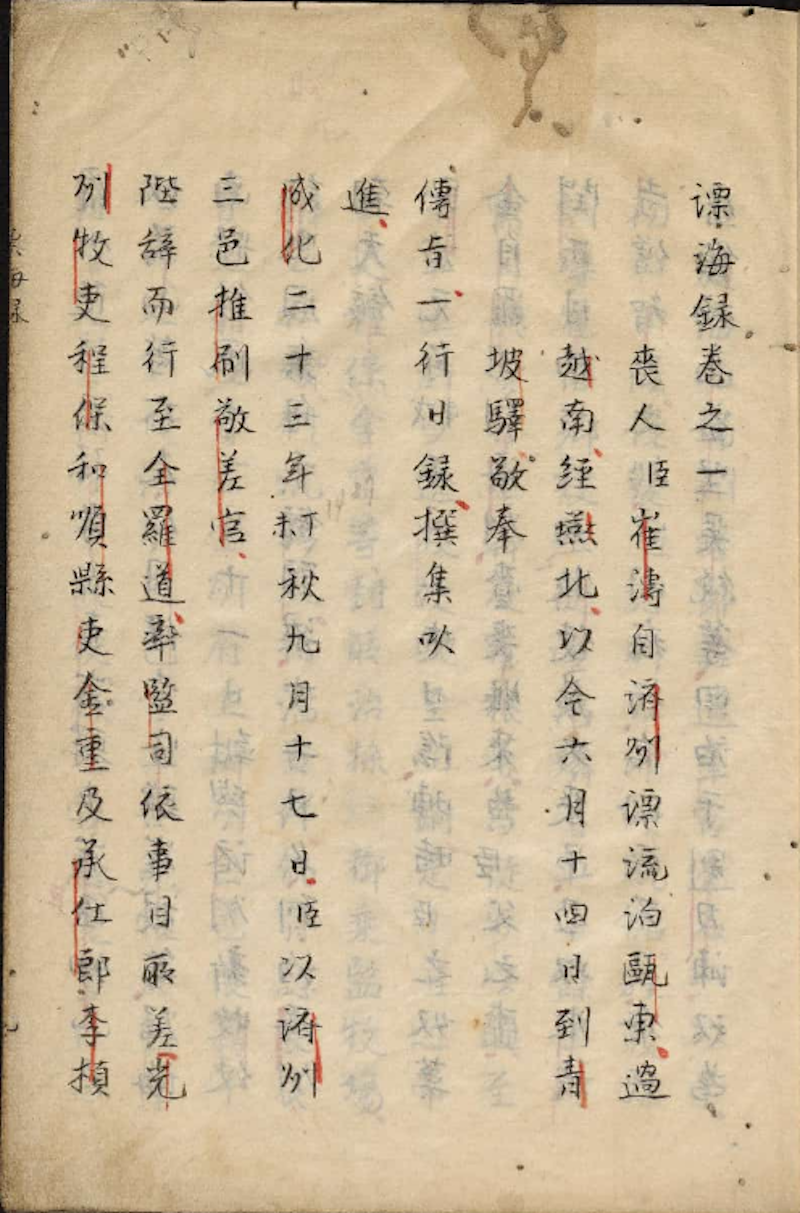 漂海録卷之一
喪人臣崔溥自濟州漂流泊甌東過
越南經燕北以今六月十四日到青
坡驛敬奉
傳旨一行日録撰集以
進
成化二十三年丁未秋九月十七日臣以濟州
三邑推刷敬差官
陛辭而行至全羅道率監司依事目所差光
州牧吏程保和順縣吏金重及承仕郎李楨